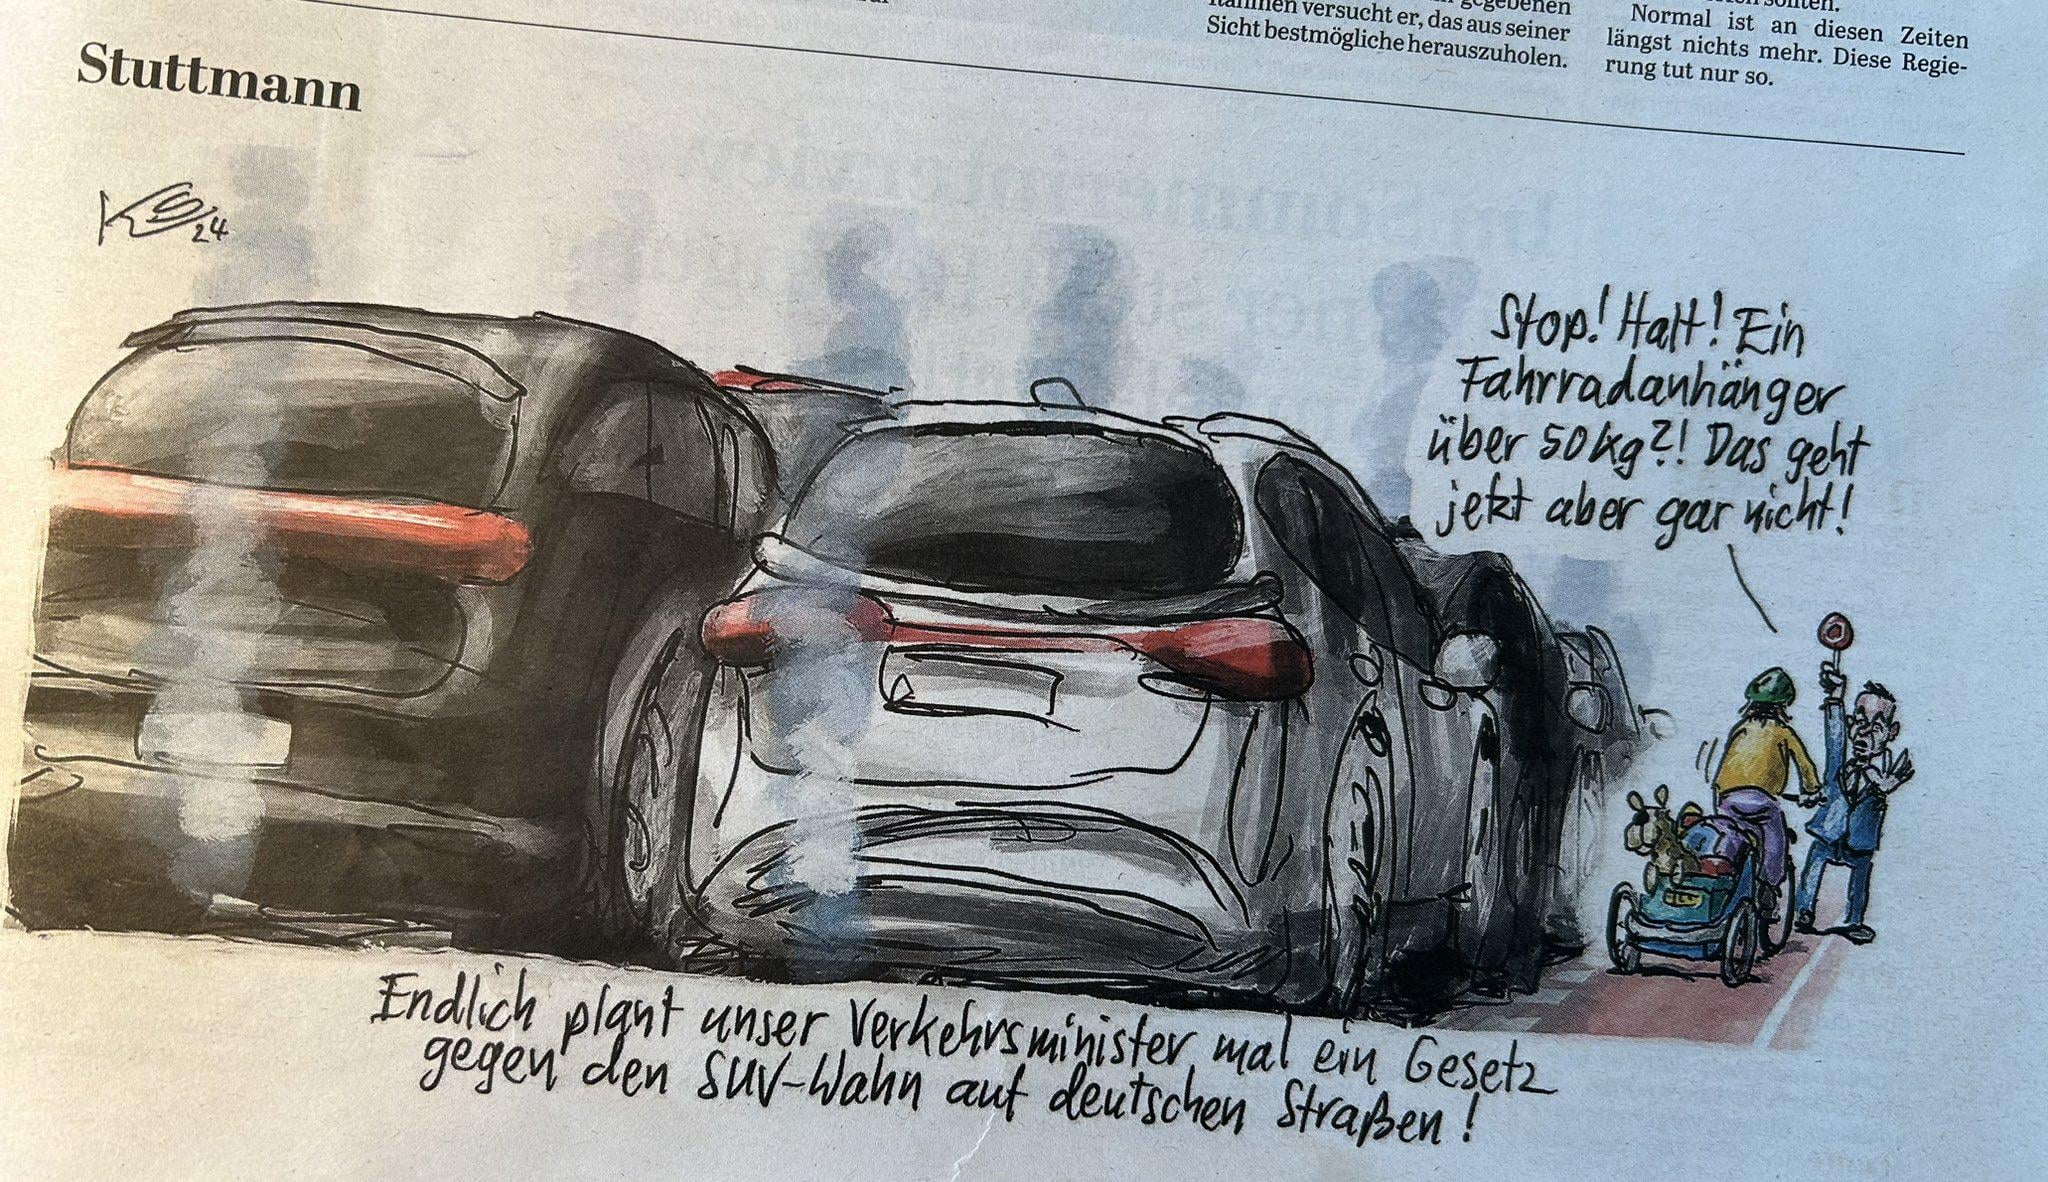 gegebenen
versucht er, das aus seiner
Sicht bestmögliche herauszuholen.
sollten.
Normal ist an diesen Zeiten
längst nichts mehr. Diese Regie-
rung tut nur so.
Stuttmann
24
Stop! Halt! Ein
Fahrradanhänger
über 50kg?! Das geht
jetzt aber gar nicht!
Endlich plant unser Verkehrsminister mal ein Gesetz
gegen den SUV-Wahn auf deutschen Straßen!